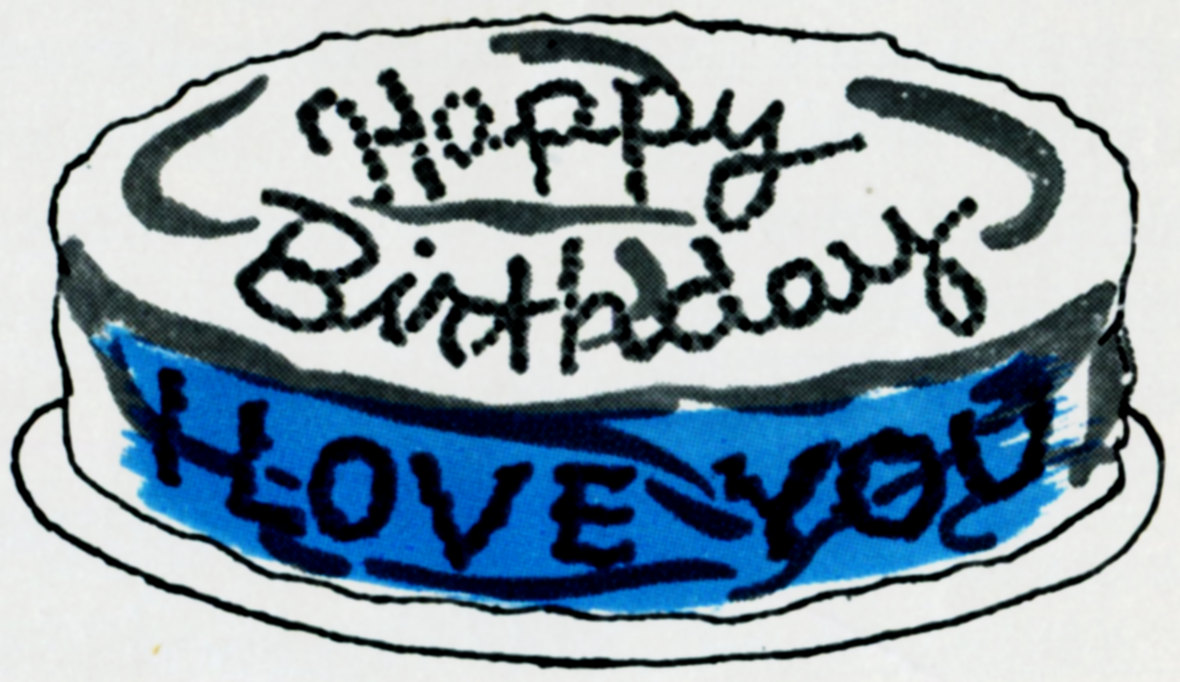 Happy
Birthday
I LOVE YOU